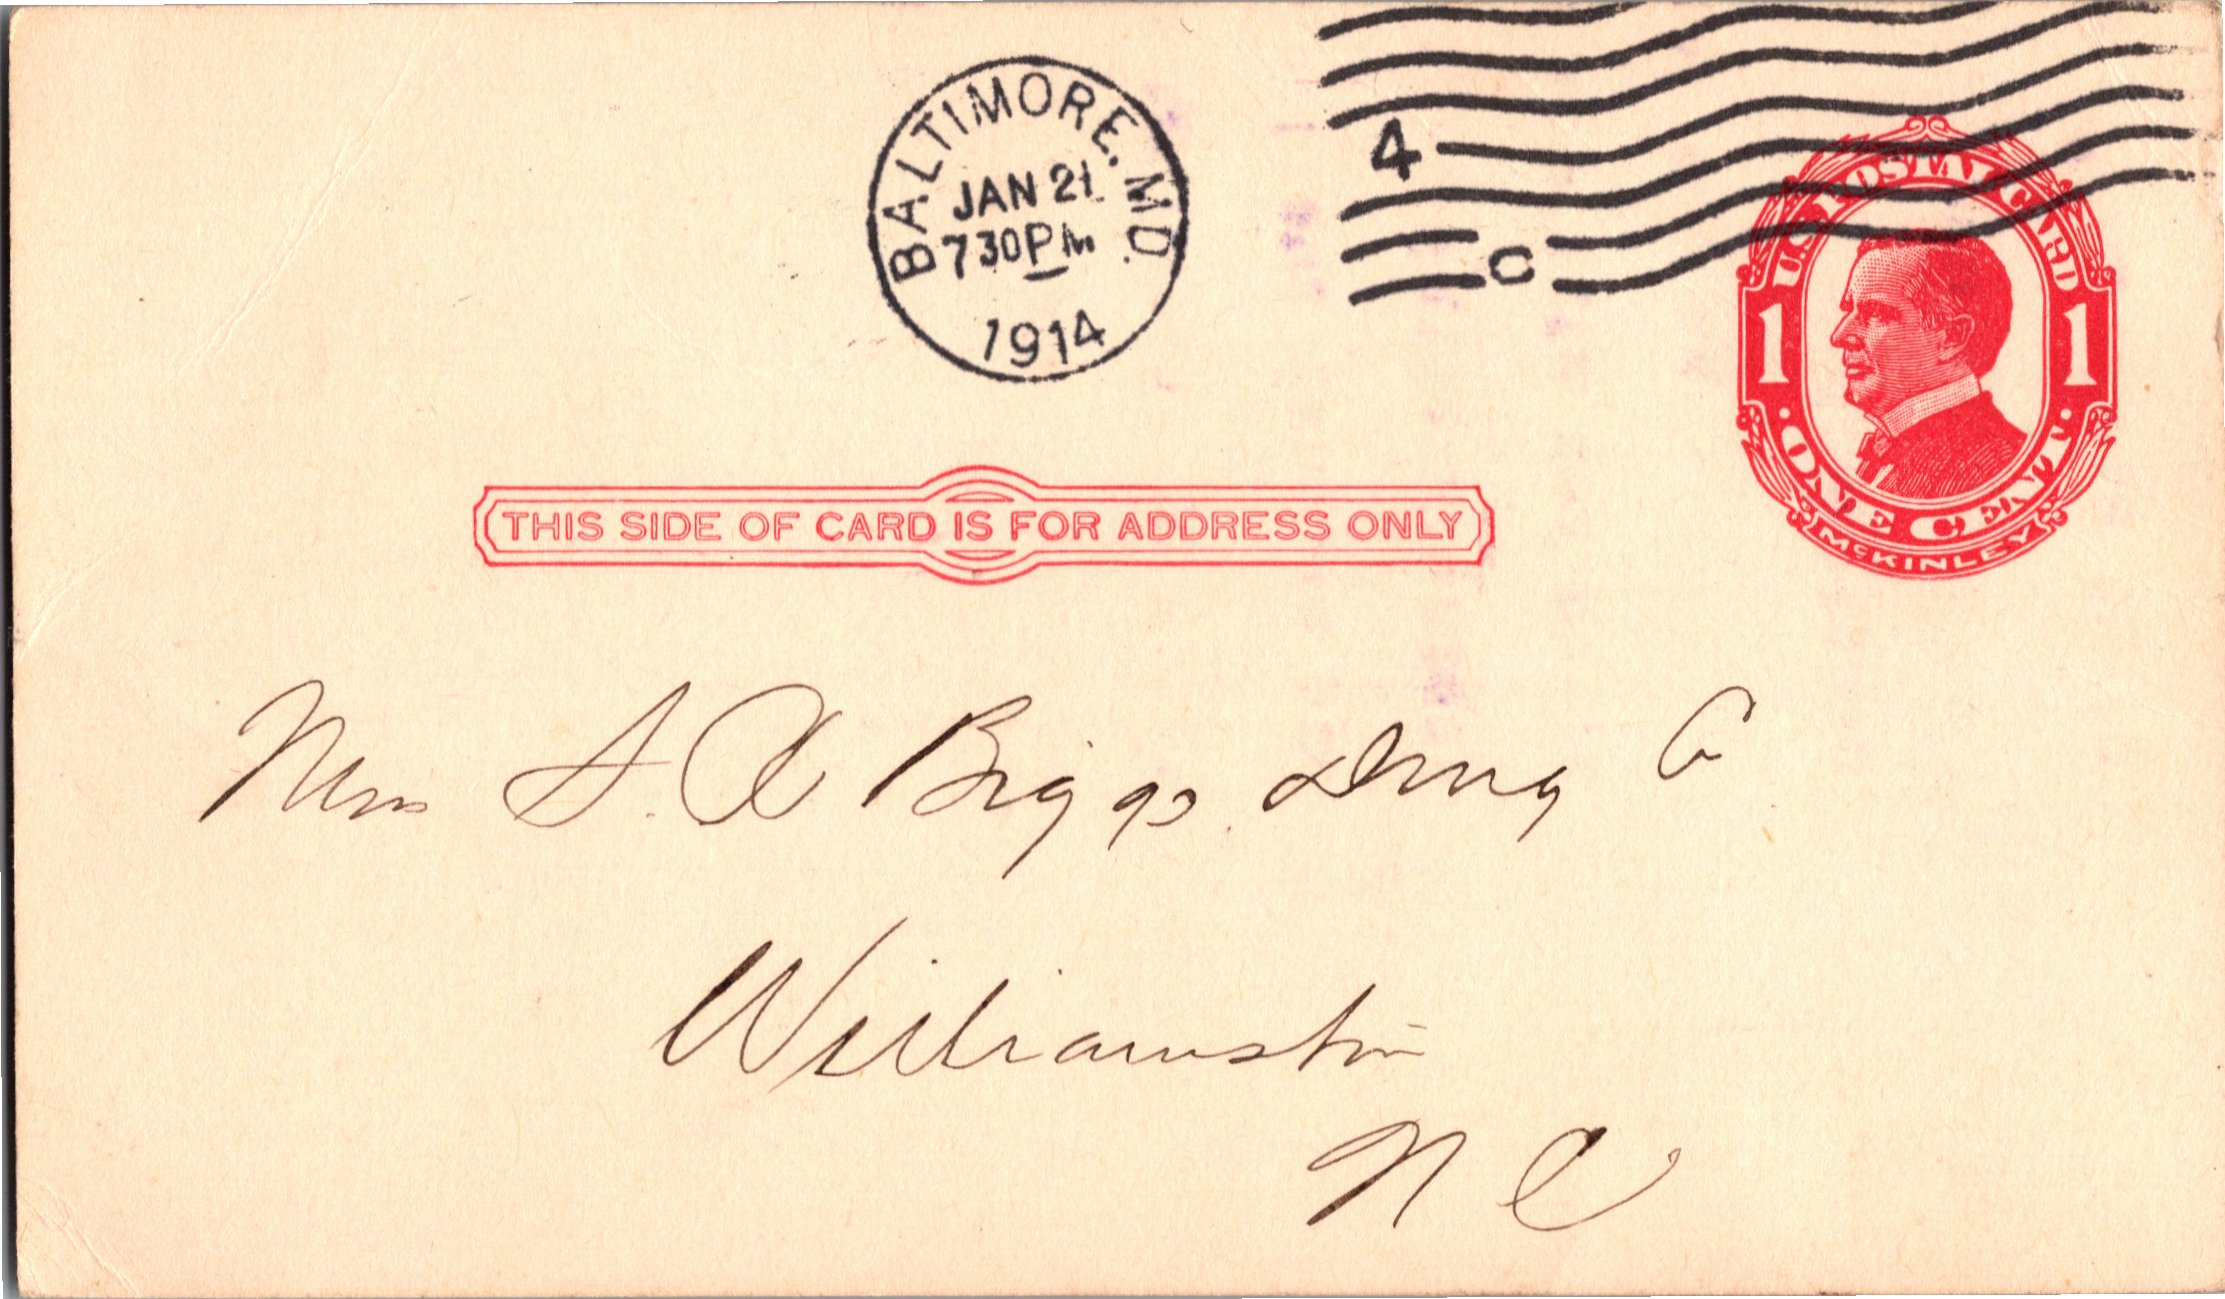 BALTIMORE, MD.
JAN 21
730 PM
1914
4
C
U.S. POSTAL CARD
1 1
ONE CENT
McKINLEY
THIS SIDE OF CARD IS FOR ADDRESS ONLY
Biggs Drug Co
Williamston
N C